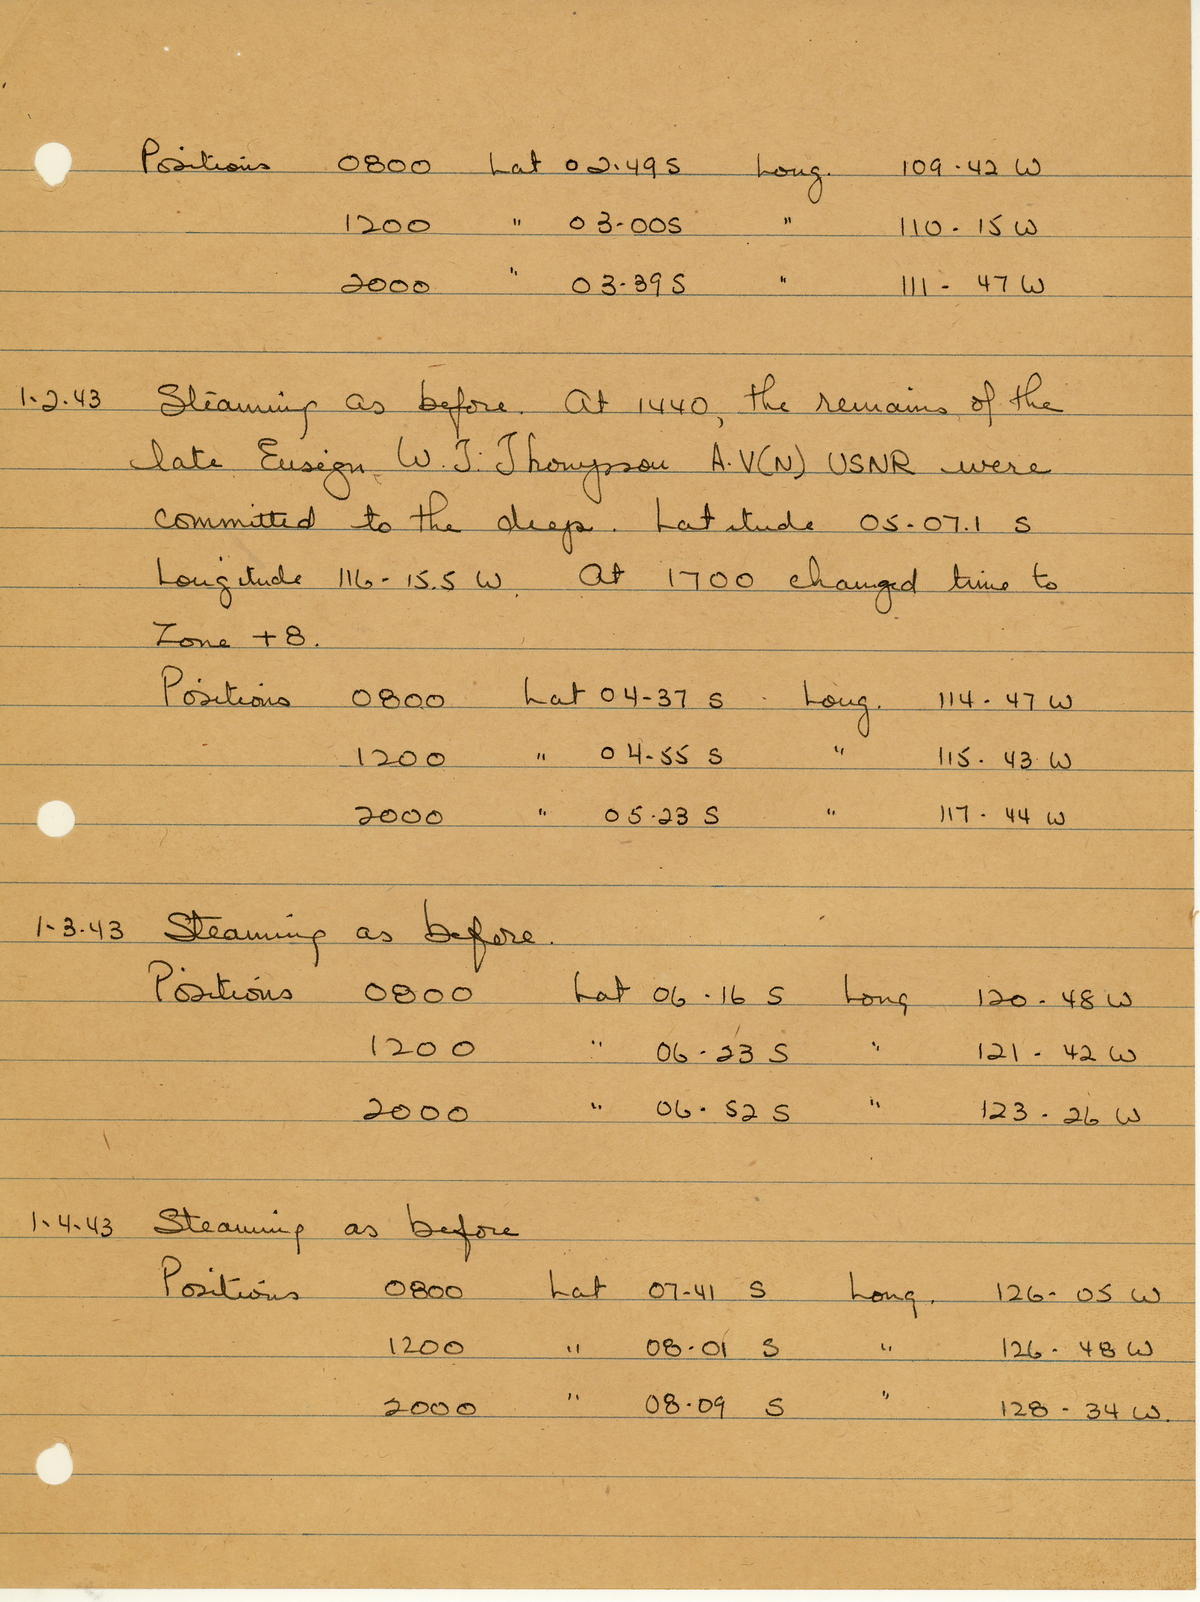 Positions 0800 Lat 02.49 S Long. 109.42 W
1200 " 03-00S " 110. 15 W
2000 " 03-39 S " 111 - 47 W
1-2-43 Steaming as before. At 1440, the remains of the
late Ensign W. J. Thompson A-V(N) USNR were
committed to the deep. Latitude 05-07.1 S
Longitude 116-15.5 W. At 1700 changed time to
Zone +8.
Positions 0800 Lat 04-37 S Long. 114-47 W
1200 " 04-55 S " 115. 43 W
2000 " 05-23 S " 117- 44 W
1-3-43 Steaming as before.
Positions 0800 Lat 06-16 S Long 120-48 W
1200 " 06-23 S " 121-42 W
2000 " 06-52 S " 123-26 W
1-4-43 Steaming as before
Positions 0800 Lat 07-41 S Long. 126-05 W
1200 " 08-01 S " 126-48 W
2000 " 08-09 S " 128-34 W.